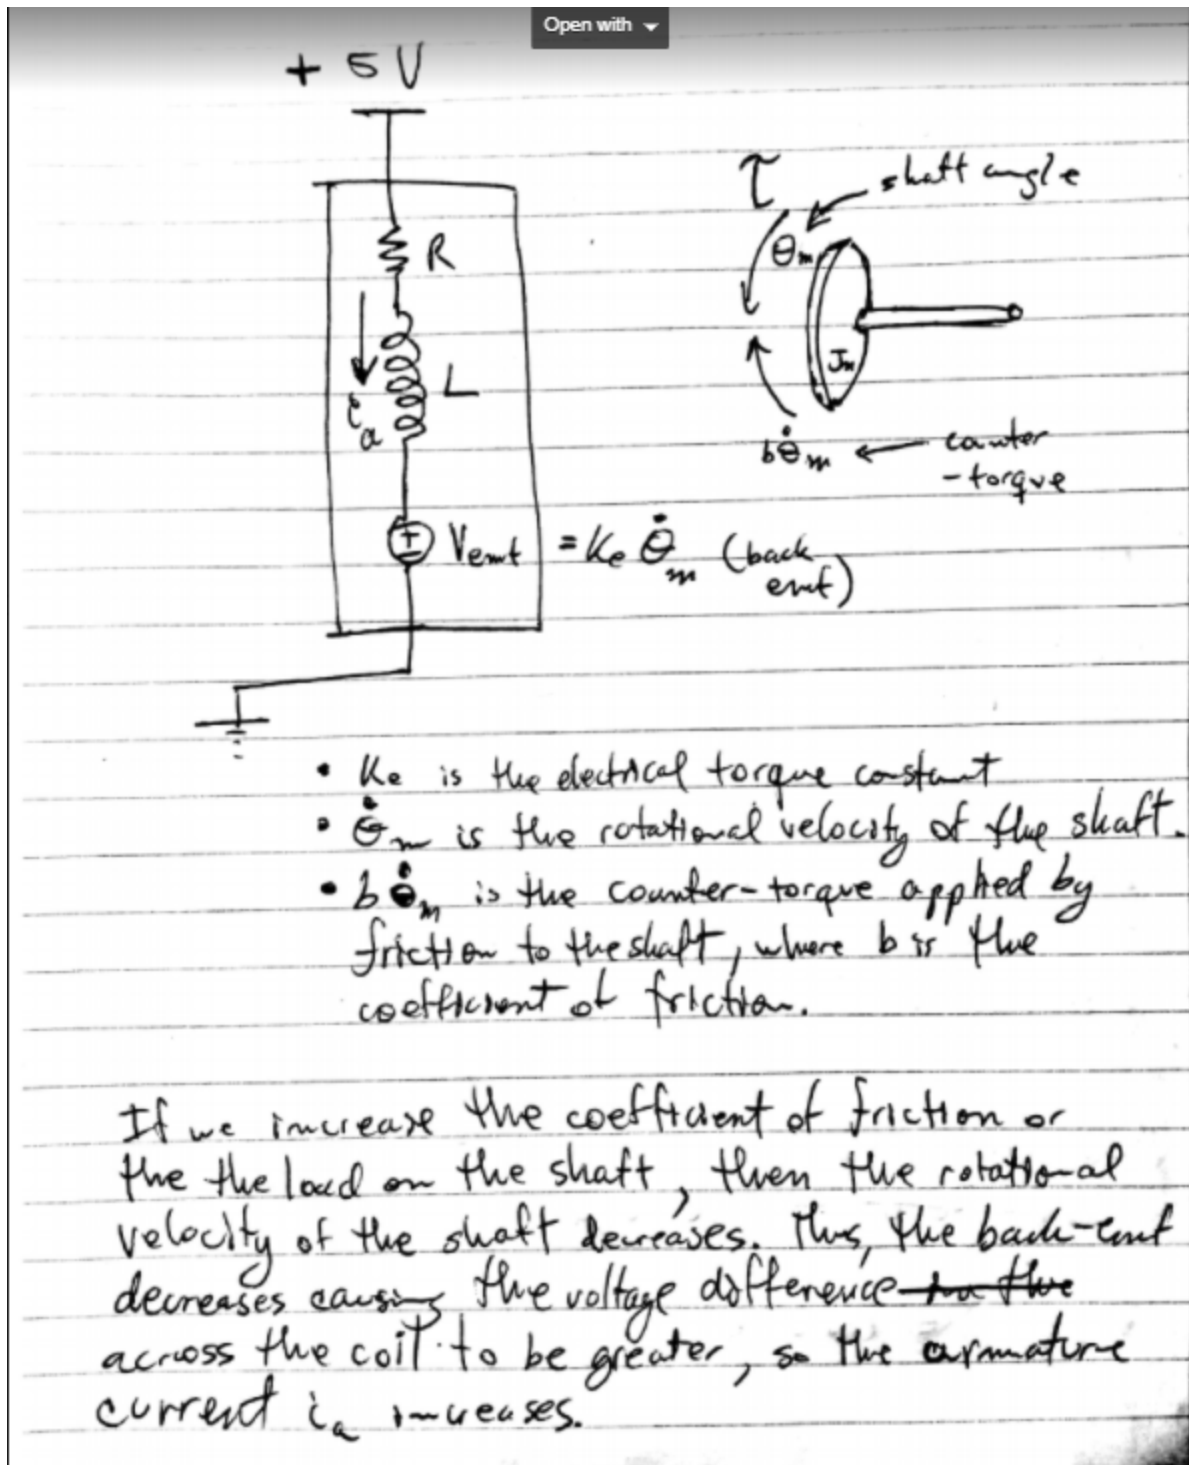 Open with
+ 5V
R
L
i_a
V_emf = K_e θ̇_m (back
emf)
τ
shaft angle
θ_m
J_m
bθ̇_m ← counter
-torque
• K_e is the electrical torque constant
• θ̇_m is the rotational velocity of the shaft.
• b θ̇_m is the counter-torque applied by
friction to the shaft, where b is the
coefficient of friction.
If we increase the coefficient of friction or
the the load on the shaft, then the rotational
velocity of the shaft decreases. Thus, the back-emf
decreases causing the voltage difference
across the coil to be greater, so the armature
current i_a increases.